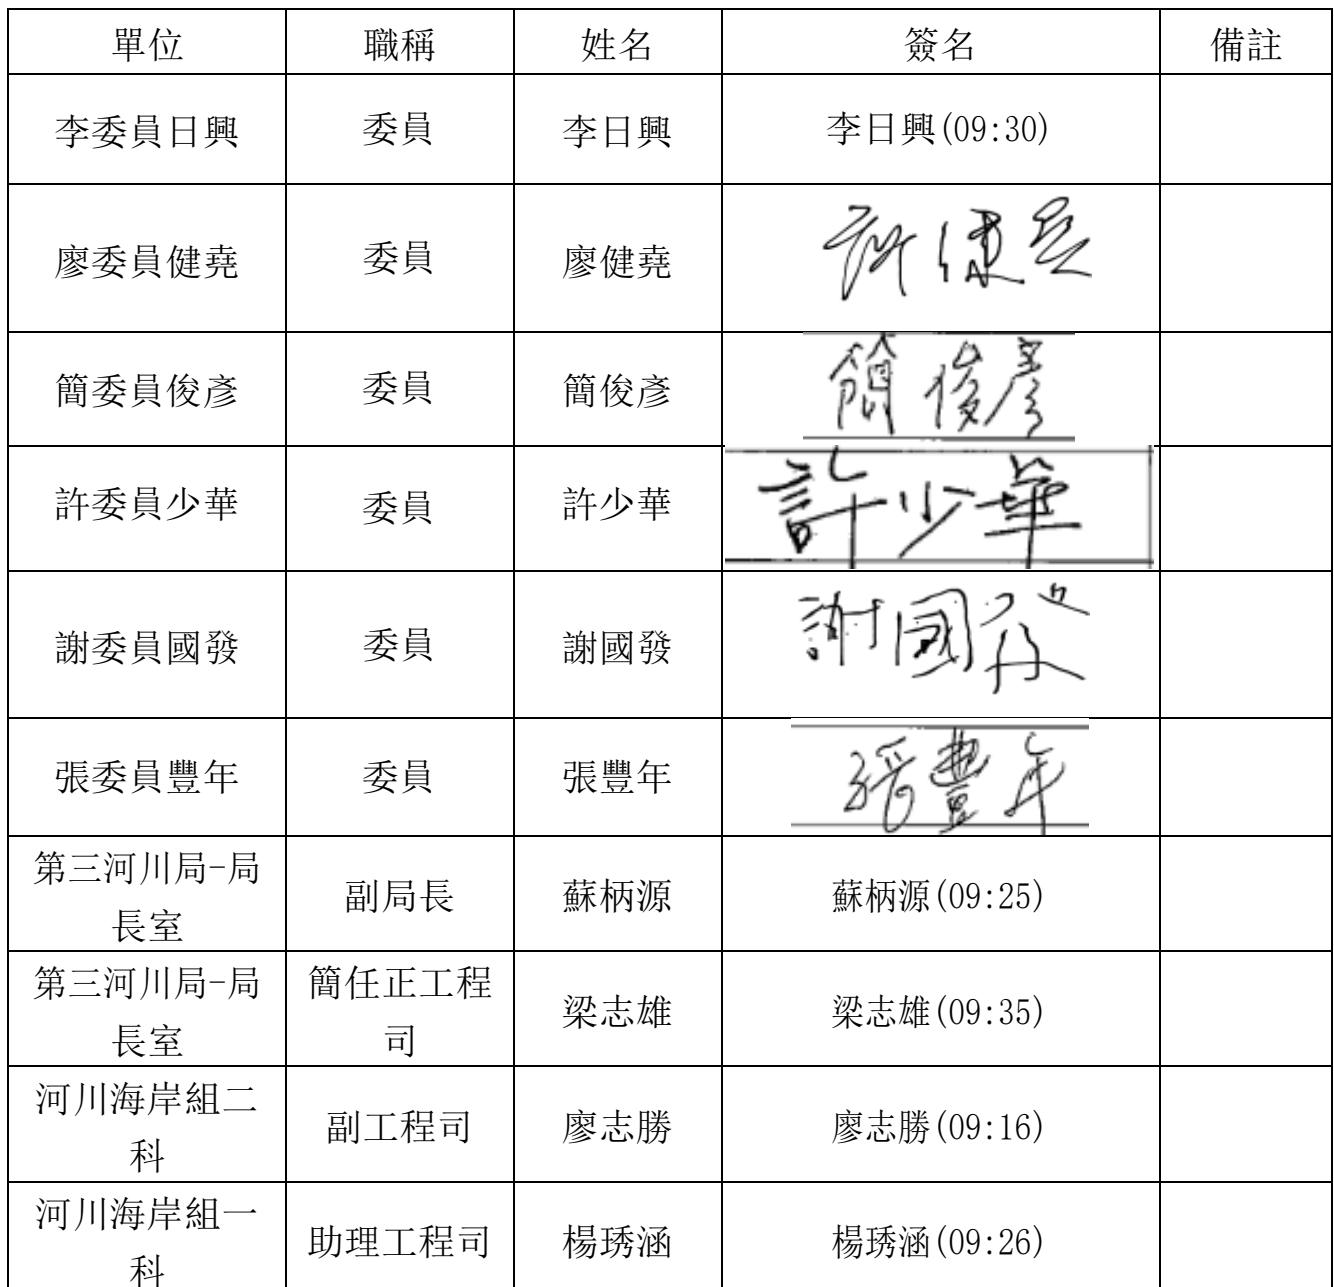 單位 職稱 姓名 簽名 備註
李委員日興 委員 李日興 李日興(09:30)
廖委員健堯 委員 廖健堯 廖健堯
簡委員俊彥 委員 簡俊彥 簡俊彥
許委員少華 委員 許少華 許少華
謝委員國發 委員 謝國發 謝國發
張委員豐年 委員 張豐年 張豐年
第三河川局-局
長室 副局長 蘇柄源 蘇柄源(09:25)
第三河川局-局
長室 簡任正工程
司 梁志雄 梁志雄(09:35)
河川海岸組二
科 副工程司 廖志勝 廖志勝(09:16)
河川海岸組一
科 助理工程司 楊琇涵 楊琇涵(09:26)